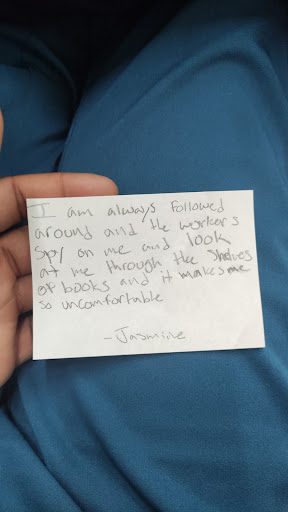 I am always followed
around and the workers
spy on me and look
at me through the shelves
of books and it makes me
so uncomfortable
-Jasmine